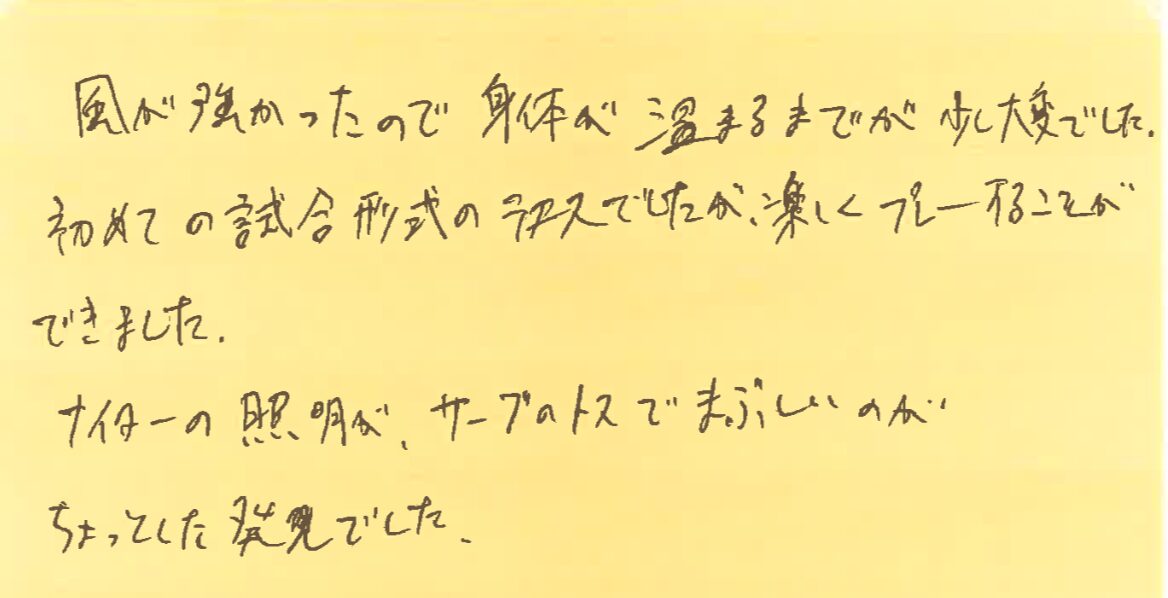 風が強かったので身体が温まるまでが少し大変でした.
初めての試合形式のテニスでしたが、楽しくプレーすることが
できました.
ナイターの照明が、サーブのトスでまぶしいのが
ちょっとした発見でした.